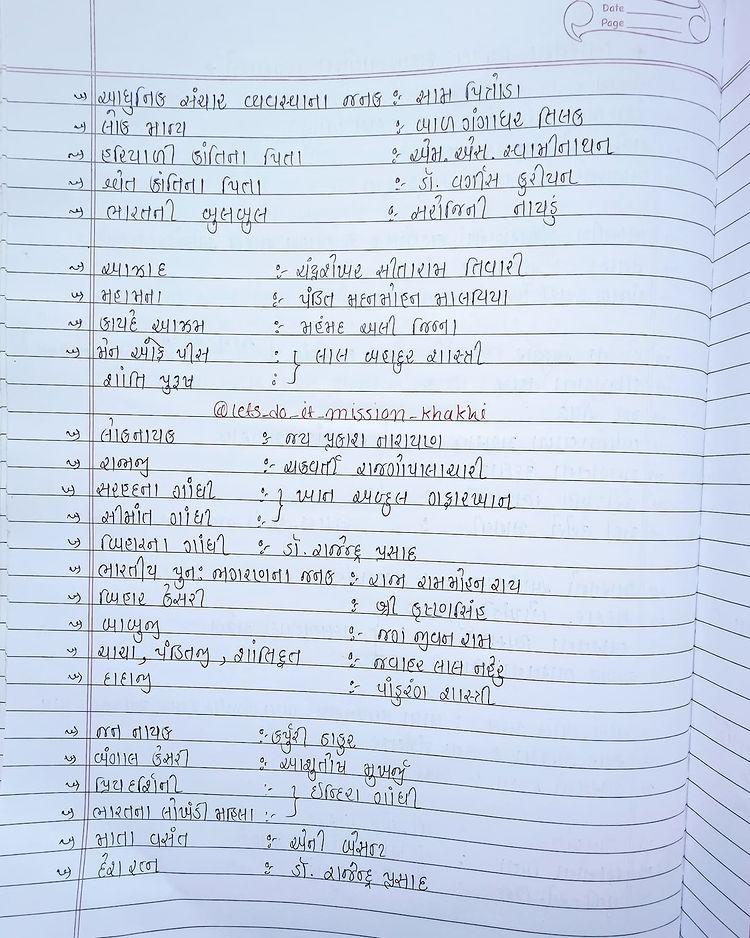 Date
Page
→ આધુનિક સંચાર વ્યવસ્થાના જનક :- સામ પિત્રોડા
→ લોક માન્ય :- બાળ ગંગાધર તિલક
→ હરિયાળી ક્રાંતિના પિતા :- એમ. એસ. સ્વામીનાથન
→ શ્વેત ક્રાંતિના પિતા :- ડૉ. વર્ગીસ કુરીયન
→ ભારતની બુલબુલ :- સરોજિની નાયડું
→ આઝાદ :- ચંદ્રશેખર સીતારામ તિવારી
→ મહામના :- પંડિત મદનમોહન માલવિયા
→ કાયદે આઝમ :- મહંમદ અલી જિન્ના
→ મેન ઓફ પીસ :- } લાલ બહાદુર શાસ્ત્રી
શાંતિ પુરૂષ :-
@lets_do_it_mission_khakhi
→ લોકનાયક :- જય પ્રકાશ નારાયણ
→ રાજાજી :- ચક્રવર્તી રાજગોપાલાચારી
→ સરહદના ગાંધી :- } ખાન અબ્દુલ ગફારખાન
→ સીમાંત ગાંધી :-
→ બિહારના ગાંધી :- ડૉ. રાજેન્દ્ર પ્રસાદ
→ ભારતીય પુનઃ જાગરણના જનક :- રાજા રામમોહન રાય
→ બિહાર કેસરી :- શ્રી કૃષ્ણસિંહ
→ બાબુજી :- જગજીવન રામ
→ ચાચા, પંડિતજી, શાંતિદૂત :- જવાહર લાલ નહેરુ
→ દાદાજી :- પાંડુરંગ શાસ્ત્રી
→ જન નાયક :- કર્પુરી ઠાકુર
→ બંગાલ કેસરી :- આશુતોષ મુખર્જી
→ પ્રિયદર્શિની :- } ઈન્દિરા ગાંધી
→ ભારતના લોખંડી મહિલા :-
→ માતા વસંત :- એની બેસન્ટ
→ દેશ રત્ન :- ડૉ. રાજેન્દ્ર પ્રસાદ